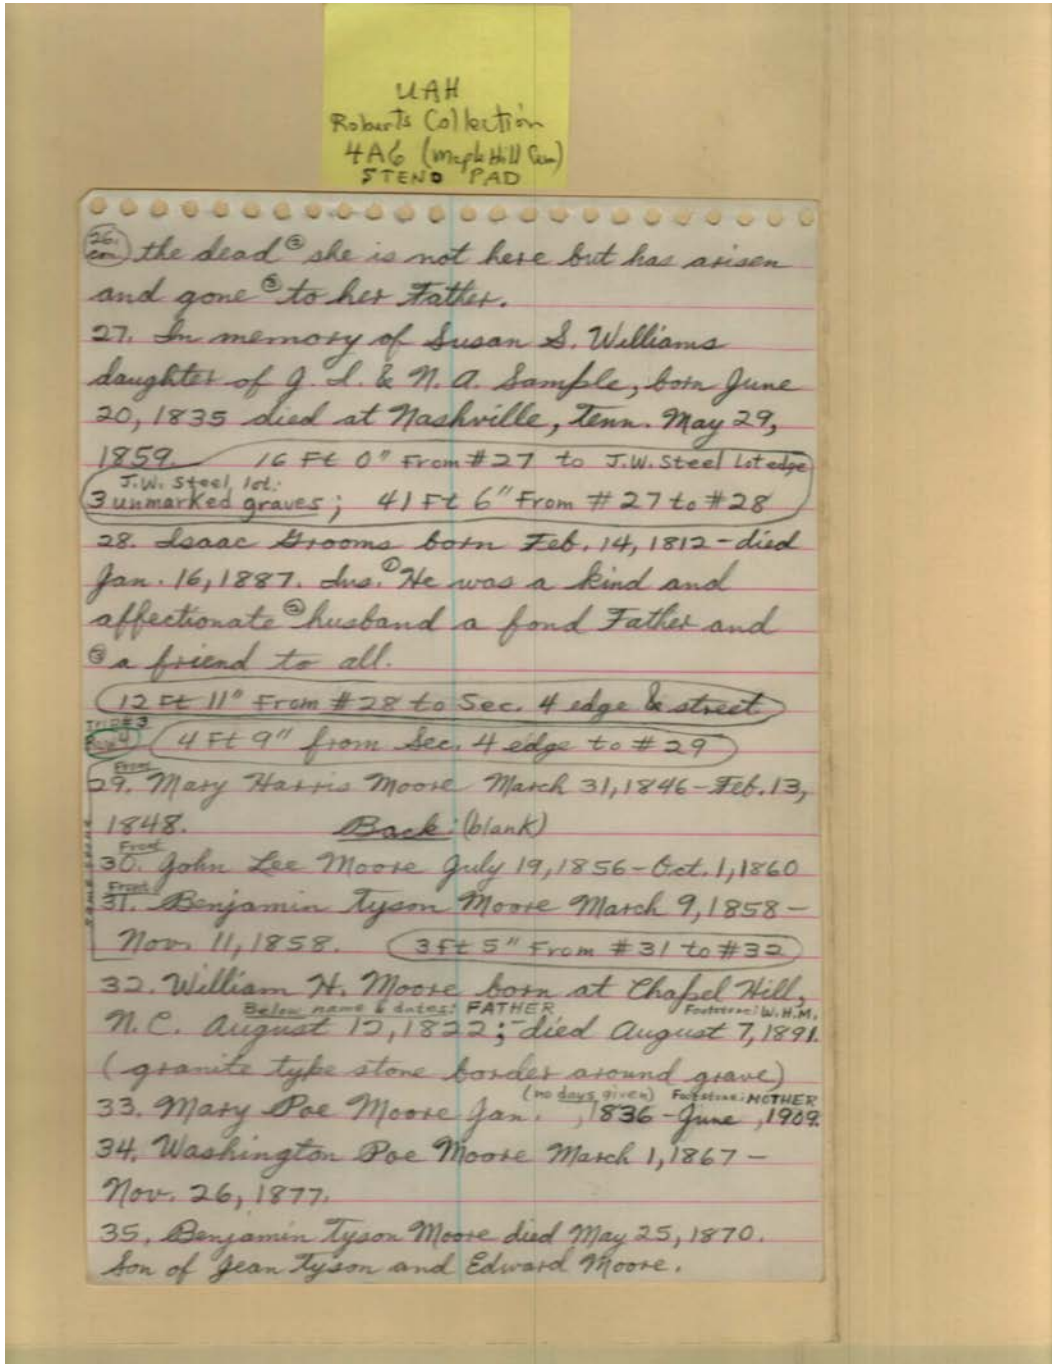 UAH
Roberts Collection
4A6 (Maple Hill Cem)
STENO PAD
26. con. the dead ② she is not here but has arisen
and gone ③ to her Father.
27. In memory of Susan S. Williams
daughter of J. I. & N. A. Sample, born June
20, 1835 died at Nashville, Tenn. May 29,
1859. 16 Ft 0" From #27 to J.W. Steel Lot edge
J.W. Steel, lot:
3 unmarked graves; 41 Ft 6" From #27 to #28
28. Isaac Grooms born Feb. 14, 1812 - died
Jan. 16, 1887. Ins. ① He was a kind and
affectionate ② husband a fond Father and
③ a friend to all.
12 Ft 11" From #28 to Sec. 4 edge & street
Trip #3
Row 4 4 Ft 9" from Sec. 4 edge to #29
Front
29. Mary Harris Moore March 31, 1846 - Feb. 13,
1848. Back: (blank)
Front
30. John Lee Moore July 19, 1856 - Oct. 1, 1860
Front
31. Benjamin Tyson Moore March 9, 1858 -
Nov. 11, 1858. 3 Ft 5" From #31 to #32
SAME STONE
32. William H. Moore born at Chapel Hill,
Below name & dates: FATHER Footstone: W.H.M.
N.C. August 12, 1822; - died August 7, 1891.
(granite type stone border around grave)
(no days given) Footstone: MOTHER
33. Mary Poe Moore Jan. , 1836 - June , 1909.
34. Washington Poe Moore March 1, 1867 -
Nov. 26, 1877.
35. Benjamin Tyson Moore died May 25, 1870.
Son of Jean Tyson and Edward Moore.